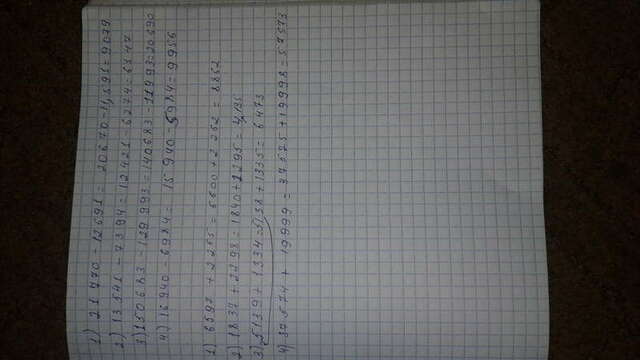 1) 21 770 - 12 691 = 20 670 - 11,591 = 9079
2) 13 541 - 7 394 = 12 421 - 6274 = 6147
3) 150 683 - 129 993 = 140 683 - 119 993 = 20 690
4) 16 940 - 6 984 = 15 940 - 5 984 = 9 956
1) 6597 + 2265 = 6600 + 2 262 = 8862
2) 1834 + 2298 = 1840 + 2295 = 4,135
3) 5139 + 1334 = 5138 + 1335 = 6 473
4) 37 574 + 19999 = 37 575 + 19998 = 57573